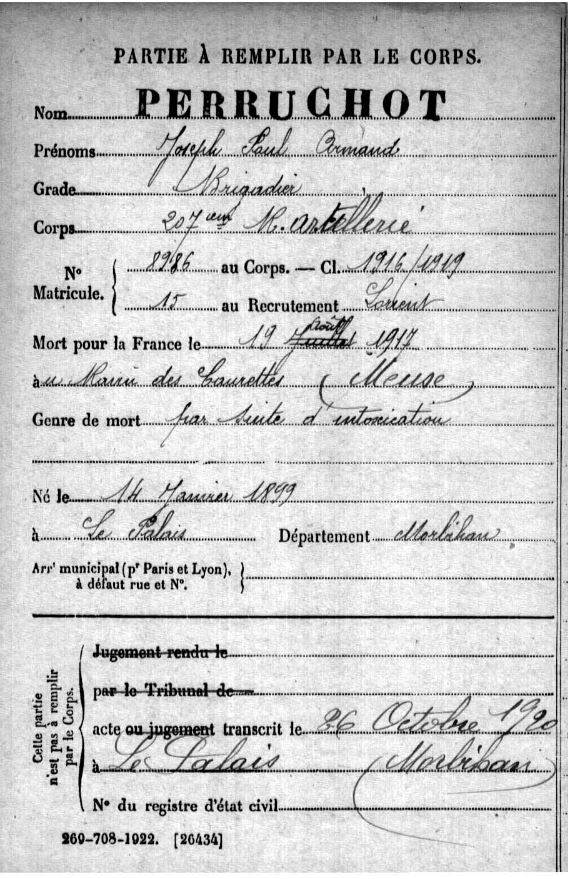 PARTIE À REMPLIR PAR LE CORPS.
Nom PERRUCHOT
Prénoms Joseph Paul Armand
Grade Brigadier
Corps 207 eme R. artillerie
N° Matricule. 8986 au Corps. — Cl. 1916/1919
15 au Recrutement Lorient
Août
Mort pour la France le 19 Juillet 1917
au Ravin des Caurettes (Meuse)
Genre de mort par suite d'intoxication
Né le 14 Janvier 1899
à Le Palais Département Morbihan
Arrt municipal (pr Paris et Lyon),
à défaut rue et N°.
Cette partie n'est pas à remplir par le Corps.
Jugement rendu le
par le Tribunal de
acte ou jugement transcrit le 26 Octobre 1920
à Le Palais (Morbihan)
N° du registre d'état civil
269-708-1922. [26434]